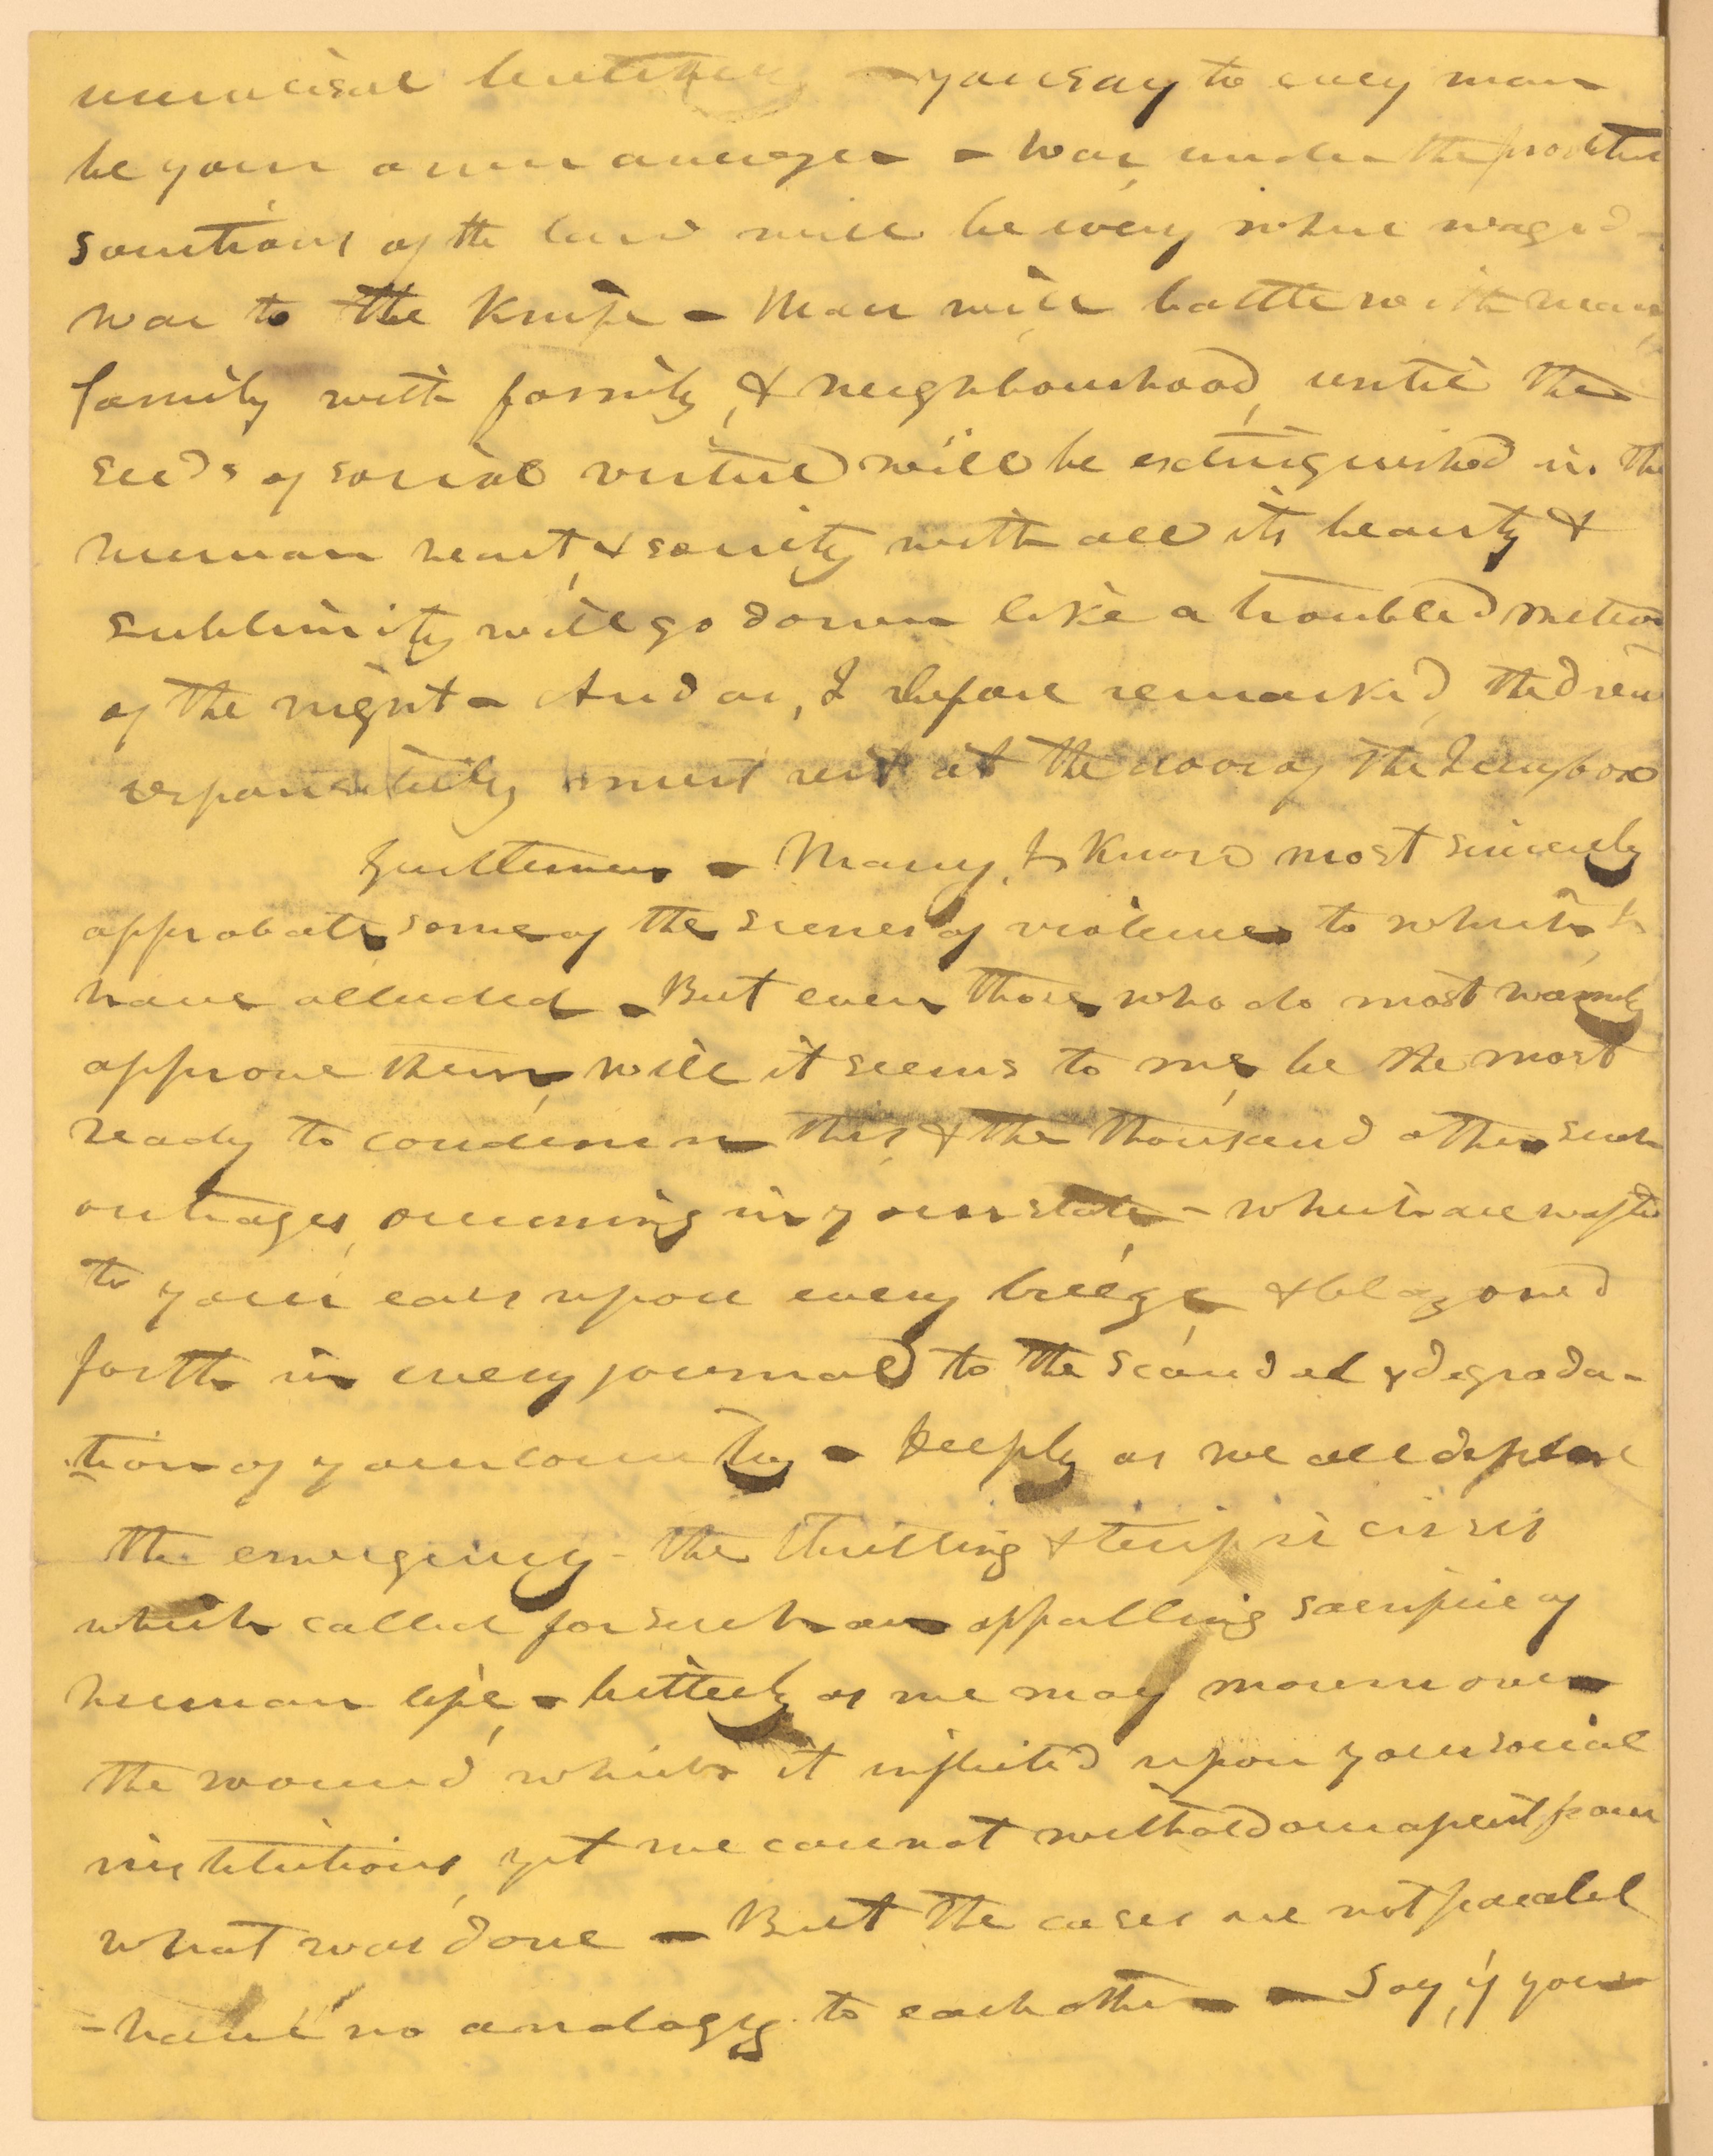 universal butchery - you say to every man
be your own avenger - War, under the
sanctions of the law will be every where waged -
war to the Knife - Man will battle with man,
family with family, & neighbourhood, until the
seeds of social virtue will be extinguished in the
human heart, & society with all its beauty &
sublimity will go down like a troubled meteor
of the night - And as, I before remarked, the
responsibility must rest at the door of the Jury box
Gentlemen - Many, I Know most sincerely
approbate some of the scenes of violence to which I
have alluded - But even those who do most warmly
approve them, will it seems to me, be the most
ready to condemn this, & the thousand other such
outrages, occurring in your state - which are wafted
to your ears upon every breeze & blazoned
forth in every journal to the scandal & degrada-
tion of your country - Deeply as we all deplore
the emergency - the thrilling & terrific crisis
which called for such an appalling sacrifice of
human life - bitterly as we may mourn over
the wound which it inflicted upon your social
institutions, yet we cannot withold our assent from
what was done - But the cases are not paralel
- have no analogy to each other - - Say, if you